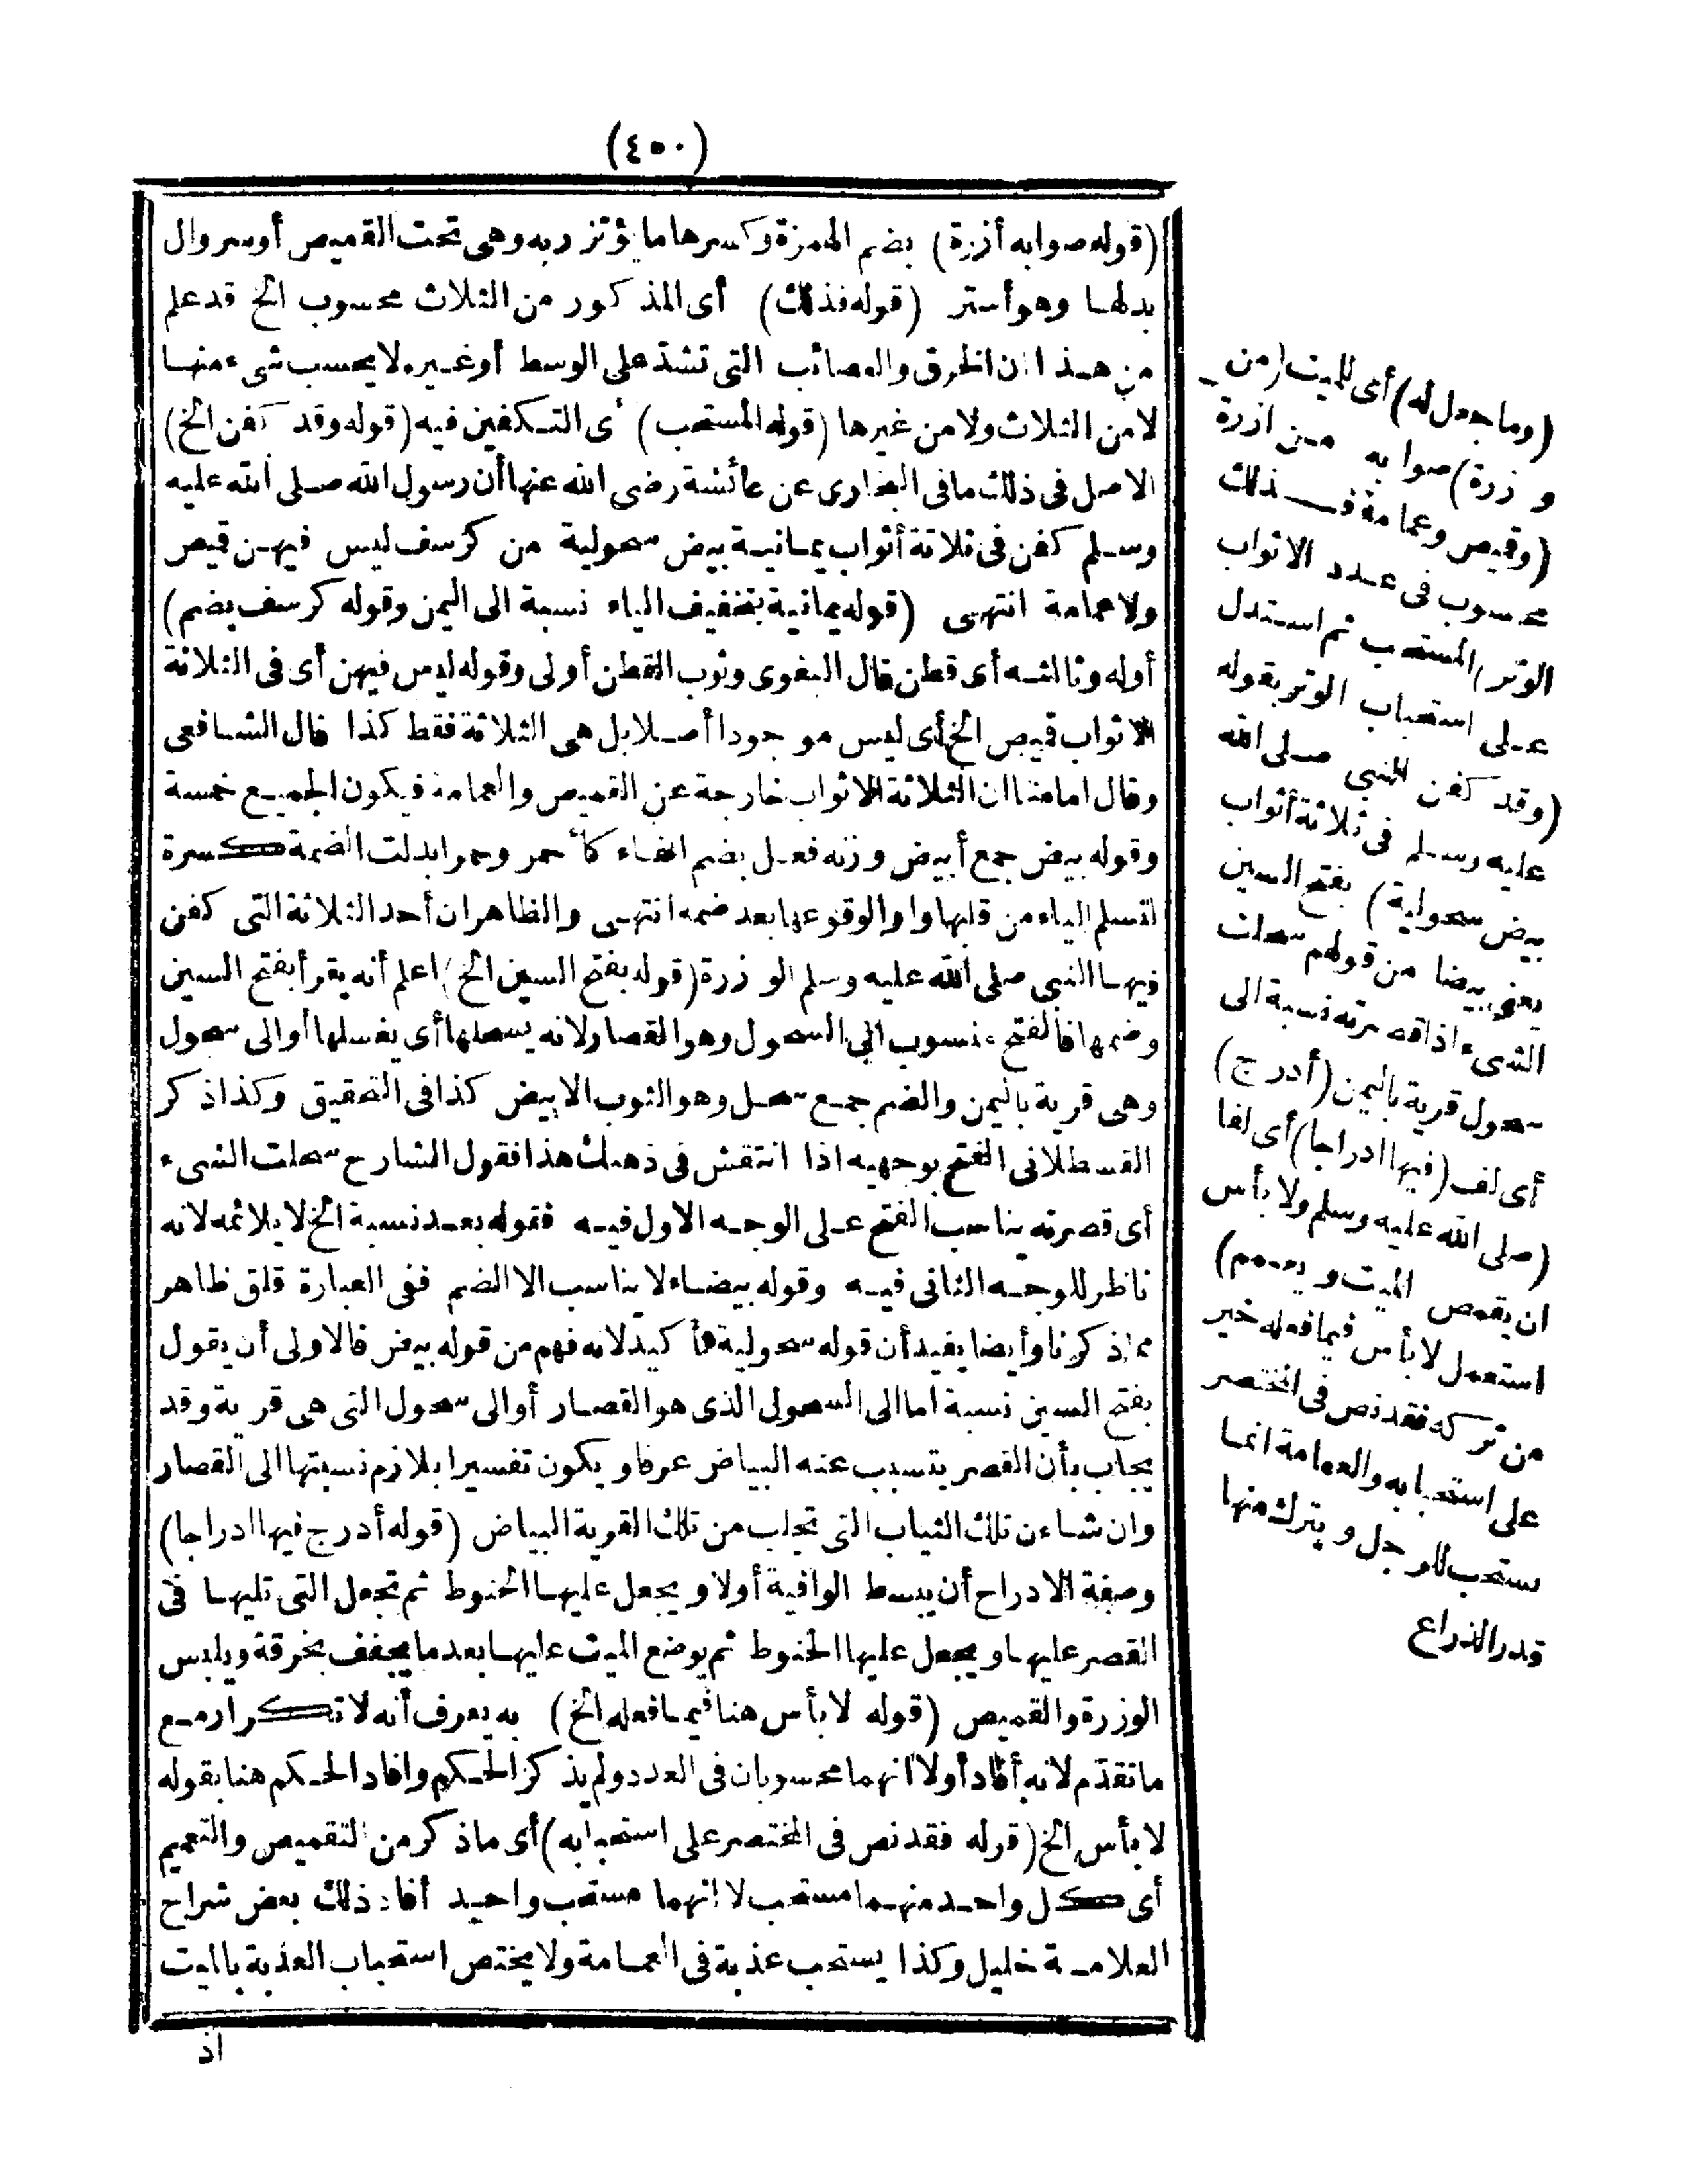 (٤٥٠)
(قوله صوابه أزرة) بضم الهمزة وكسرها ما يؤتزر به وهى تحت القميص أوسروال
بدلها وهو أستر (قوله فذلك) أى المذكور من الثلاث محسوب الخ قد علم
من هذا ان الخرق والعصائب التى تشد على الوسط أو غيره لا يحسب شىء منها
لا من الثلاث ولا من غيرها (قوله المستحب) أى التكفين فيه (قوله وقد كفن الخ)
الاصل فى ذلك ما فى البخارى عن عائشة رضى الله عنها أن رسول الله صلى الله عليه
وسلم كفن فى ثلاثة أثواب يمانية بيض سحولية من كرسف ليس فيهن قميص
ولا عمامة انتهى (قوله يمانية بتخفيف الياء نسبة الى اليمن وقوله كرسف بضم)
أوله وثالثه أى قطن قال البغوى وثوب القطن أولى وقوله ليس فيهن أى فى الثلاثة
الاثواب قميص الخ أى ليس موجودا أصلا بل هى الثلاثة فقط كذا قال الشافعى
وقال امامنا ان الثلاثة الاثواب خارجة عن القميص والعمامة فيكون الجميع خمسة
وقوله بيض جمع أبيض وزنه فعل بضم الفاء كأحمر وحمر ابدلت الضمة كسرة
لتسلم الياء من قلبها واوا لوقوعها بعد ضمه انتهى والظاهر ان أحد الثلاثة التى كفن
فيها النبى صلى الله عليه وسلم الوزرة (قوله بفتح السين الخ) اعلم أنه يقرأ بفتح السين
وضمها فالفتح منسوب الى السحول وهو القصار لانه يسحلها أى يغسلها أو الى سحول
وهى قرية باليمن والضم جمع سحل وهو الثوب الابيض كذا فى التحقيق وكذا ذكر
القسطلانى الفتح بوجهيه اذا انتقش فى ذهنك هذا فقول الشارح سحلت الشىء
أى قصرته يناسب الفتح على الوجه الاول فيه فقوله بعد نسبة الخ لا يلائمه لانه
ناظر للوجه الثانى فيه وقوله بيضاء لا يناسب الا الضم ففى العبارة قلق ظاهر
مما ذكرنا وأيضا يفيد أن قوله سحولية تأكيد لانه فهم من قوله بيض فالاولى أن يقول
بفتح السين نسبة اما الى السحول الذى هو القصار أو الى سحول التى هى قرية وقد
يجاب بأن القصر يتسبب عنه البياض عرفا و يكون تفسيرا بلازم نسبتها الى القصار
وان شاءن تلك الثياب التى تجلب من تلك القرية البياض (قوله أدرج فيها ادراجا)
وصفة الادراج أن يبسط الوافية أولا و يجعل عليها الحنوط ثم تجعل التى تليها فى
القصر عليها و يجعل عليها الحنوط ثم يوضع الميت عليها بعد ما يجفف بخرقة ويلبس
الوزرة والقميص (قوله لا بأس هنا فيما فعله الخ) به يعرف أنه لا تكرار مع
ما تقدم لانه أفاد أولا انهما محسوبان فى العدد ولم يذكر الحكم وافاد الحكم هنا بقوله
لا بأس الخ (قوله فقد نص فى المختصر على استحبابه) أى ما ذكر من التقميص والتعميم
أى كل واحد منهما مستحب لا انهما مستحب واحيد أفاد ذلك بعض شراح
العلامة خليل وكذا يستحب عذبة فى العمامة ولا يختص استحباب العذبة بالميت
اذ
(وما جعل له) أى للميت (من
وزرة) صوابه من ازرة
(وقميص وعمامة فذلك
محسوب فى عدد الاثواب
الوتر) المستحب ثم استدل
على استحباب الوتر بقوله
(وقد كفن النبى صلى الله
عليه وسلم فى ثلاثة أثواب
بيض سحولية) بفتح السين
يعنى بيضا من قولهم سحلت
الشىء اذا قصرته نسبة الى
سحول قرية باليمن (أدرج)
أى لف (فيها ادراجا) أى لفا
(صلى الله عليه وسلم ولا بأس
ان يقمص الميت و يعمم)
استعمل لا بأس فيما فعله خير
من تركه فقد نص فى المختصر
على استحبابه والعمامة انما
تستحب للرجل و يترك منها
قدر الذراع